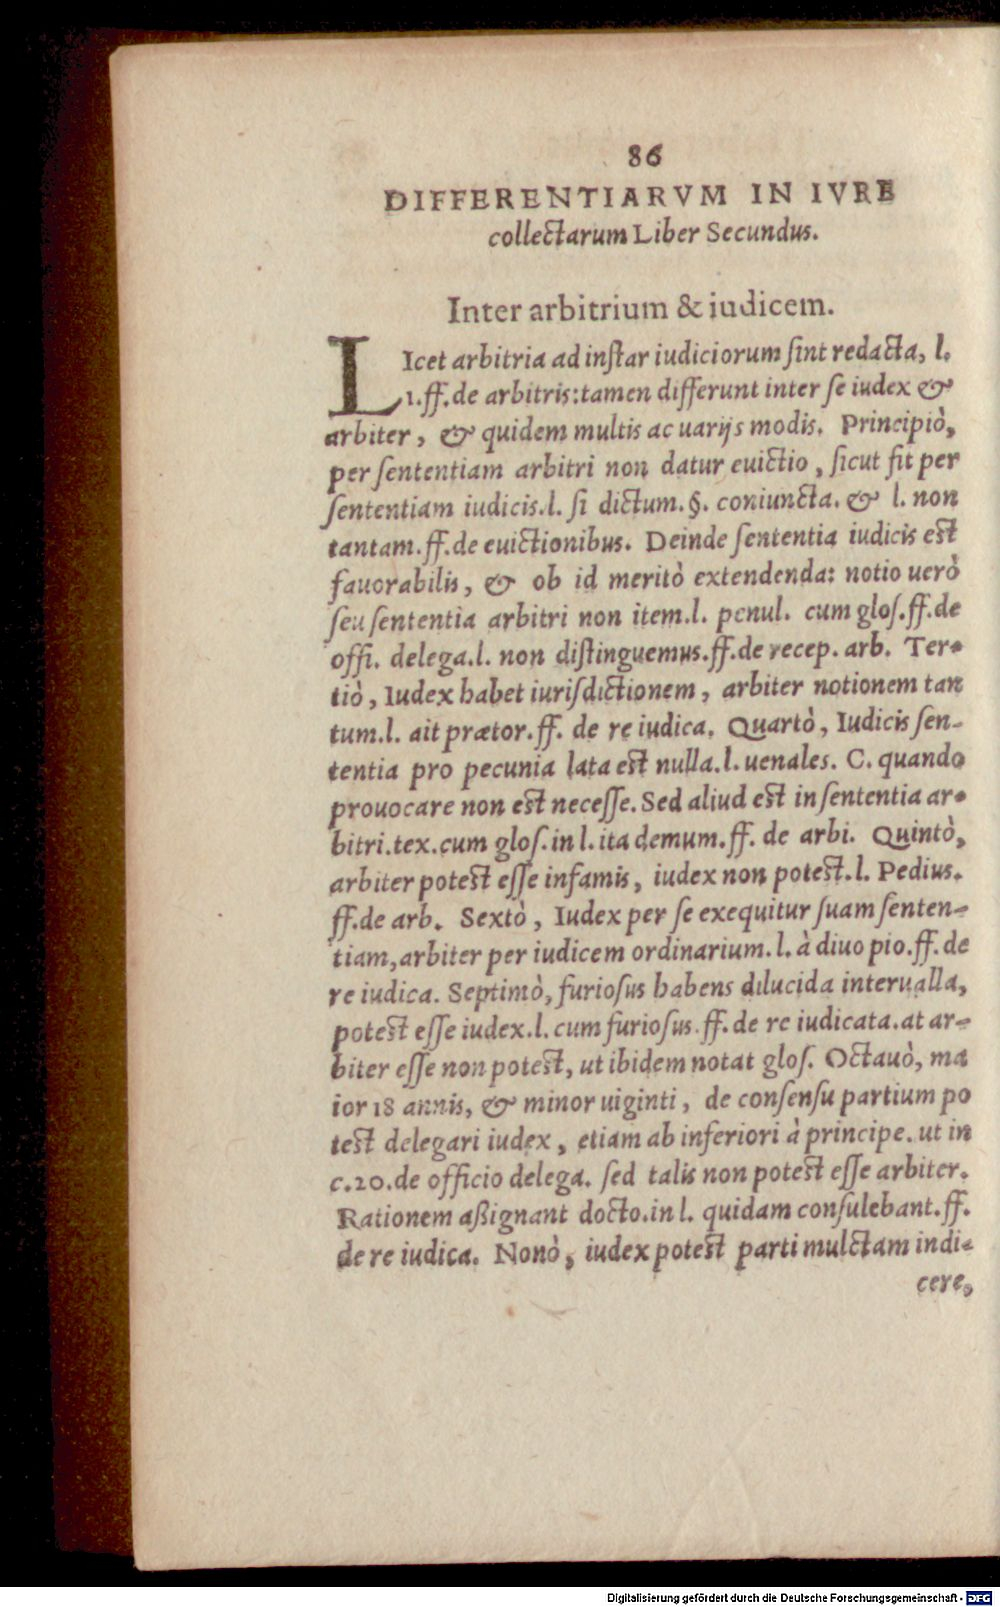 86
DIFFERENTIARVM IN IVRE
collectarum Liber Secundus.
Inter arbitrium & iudicem.
LIcet arbitria ad instar iudiciorum sint redacta, l.
1.ff.de arbitris:tamen differunt inter se iudex &
arbiter, & quidem multis ac uarijs modis. Principiò,
per sententiam arbitri non datur euictio, sicut fit per
sententiam iudicis.l. si dictum.§. coniuncta. & l. non
tantam.ff.de euictionibus. Deinde sententia iudicis est
fauorabilis, & ob id meritò extendenda: notio uerò
seu sententia arbitri non item.l. penul. cum glos.ff.de
offi. delega.l. non distinguemus.ff.de recep. arb. Ter-
tiò, Iudex habet iurisdictionem, arbiter notionem tan
tum.l. ait prætor.ff. de re iudica. Quartò, Iudicis sen-
tentia pro pecunia lata est nulla.l. uenales. C. quando
prouocare non est necesse. Sed aliud est in sententia ar-
bitri.tex.cum glos.in l.ita demum.ff. de arbi. Quintò,
arbiter potest esse infamis, iudex non potest.l. Pedius.
ff.de arb. Sextò, Iudex per se exequitur suam senten-
tiam, arbiter per iudicem ordinarium.l. à diuo pio.ff.de
re iudica. Septimò, furiosus habens dilucida interualla,
potest esse iudex.l. cum furiosus.ff.de re iudicata.at ar-
biter esse non potest, ut ibidem notat glos. Octauò, ma
ior 18 annis, & minor uiginti, de consensu partium po
test delegari iudex, etiam ab inferiori à principe. ut in
c.20.de officio delega. sed talis non potest esse arbiter.
Rationem aßignant docto.in l. quidam consulebant.ff.
de re iudica. Nonò, iudex potest parti mulctam indi-
cere,
Digitalisierung gefördert durch die Deutsche Forschungsgemeinschaft - DFG